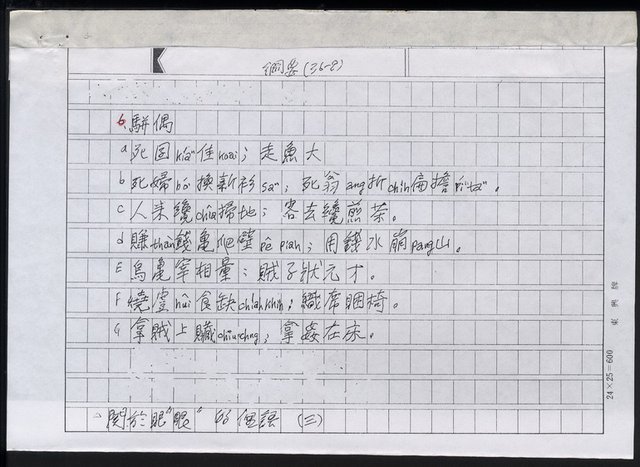 綱要(36-8)
6.駢偶
a 死囝kiáⁿ佳koai；走魚大
b 死婦bó͘換新衫saⁿ；死翁ang折chih扁擔
c 人來纔chiâ掃地；客去纔煎茶。
d 賺thàn錢亀爬壁pê piah；用錢水崩pang山。
E 烏亀宰相量；賊子狀元才。
F 燒虛hûi食缺chiah khih；織席睏椅。
G 拿賊上贓chiūⁿ chng；拿姦在床。
關於眶"眼"的俚語 (三)
24×25=600